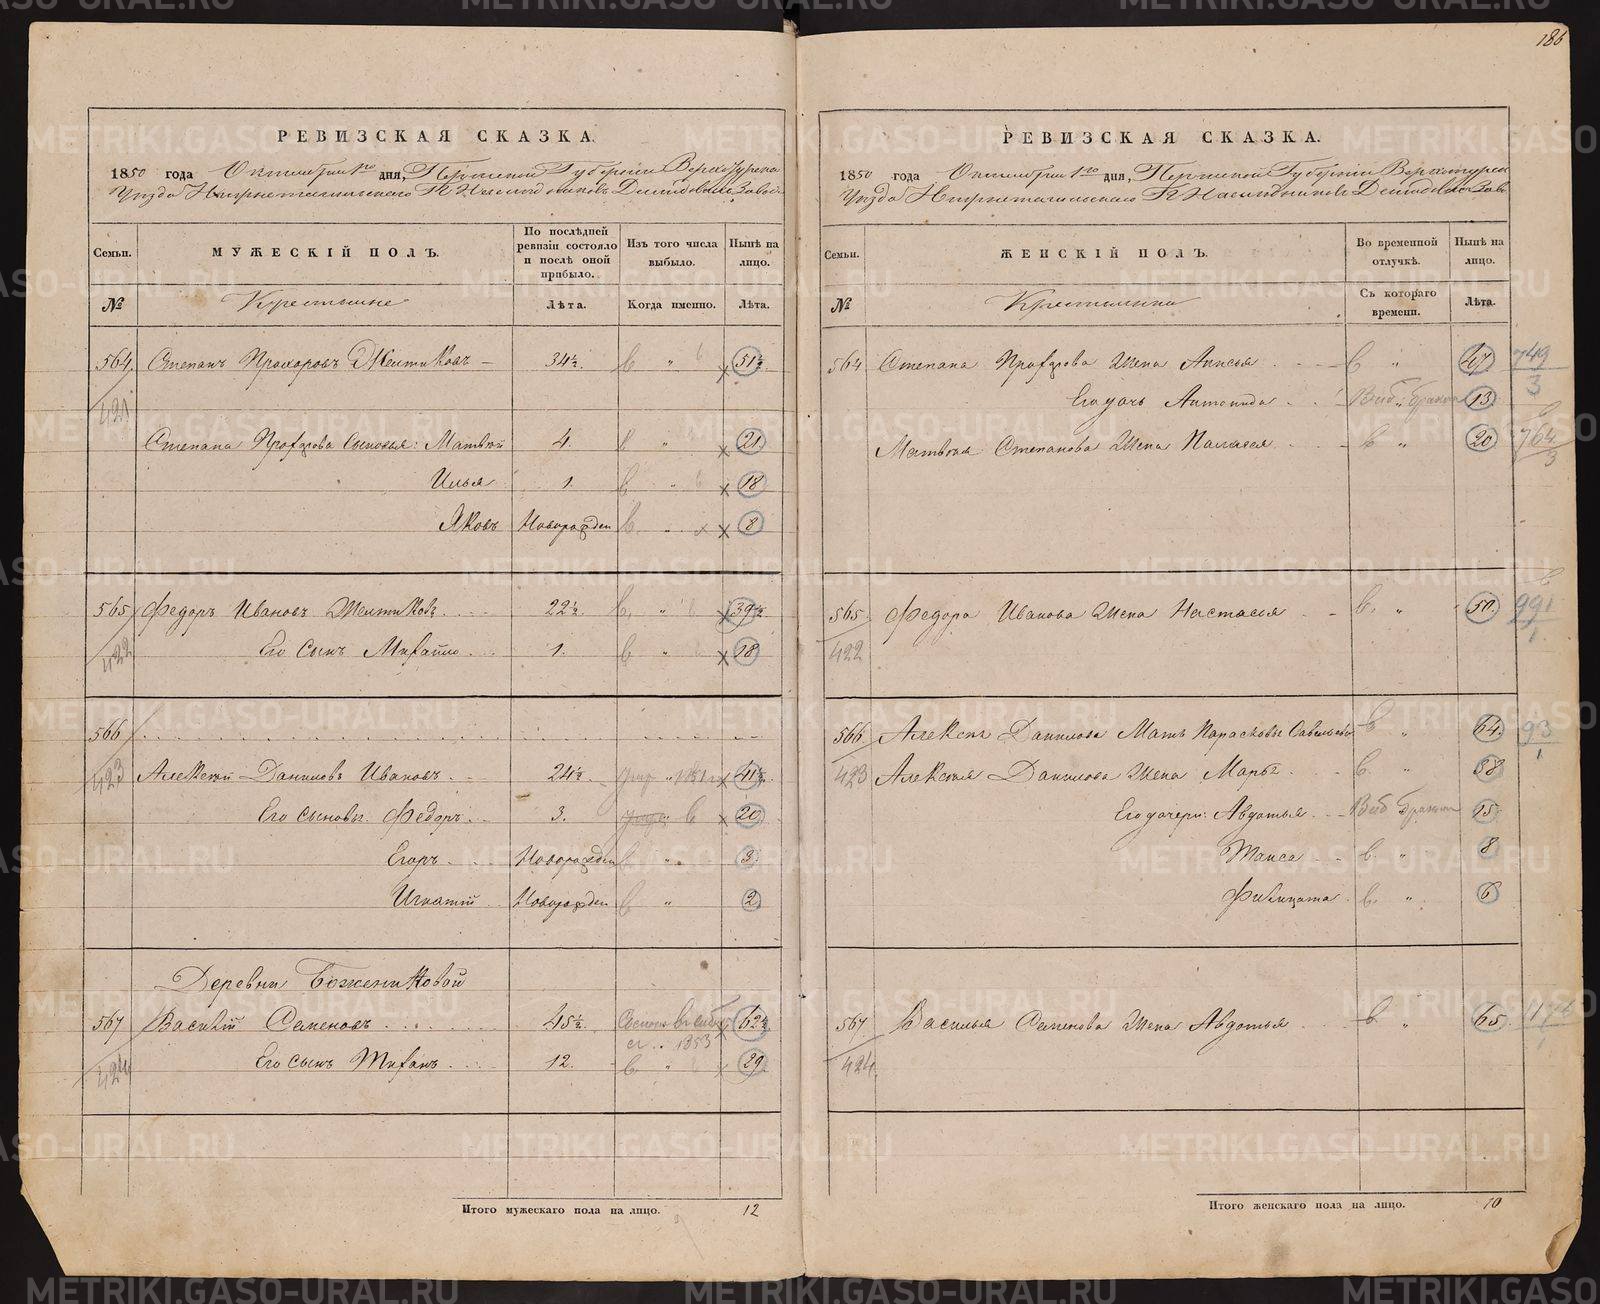 186
РЕВИЗСКАЯ СКАЗКА.
1850 года Октября 1го дня, Пермской Губернии Верхотурска
Уезда Нижнетагильскаго Г. Наследниковъ Демидовыхъ Завод
Семьи.
МУЖЕСКІЙ ПОЛЪ.
По послѣдней ревизіи состояло и послѣ оной прибыло.
Изъ того числа выбыло.
Нынѣ на лицо.
№
Крестьяне
Лѣта.
Когда именно.
Лѣта.
564 Степанъ Прохоровъ Желтиковъ 34½. в " 51½
421
Степана Прохорова Сыновья: Матвей 4. в " 21
Илья 1. в " 18
Яковъ Новорожден в " 8
565 Федоръ Ивановъ Желтиковъ 22½. в " 39½
422 Его Сынъ Михайло 1. в " 18
566
423 Алексей Даниловъ Ивановъ 24½. 41½
Его сыновья: Федоръ 3. в 20
Егоръ Новорожден в " 3
Игнатий Новорожден в " 2
Деревни Боженниковой
567 Василий Семеновъ 45½. 62½
1853
424 Его сынъ Тифанъ 12. в " 29
Итого мужескаго пола на лицо. 12
РЕВИЗСКАЯ СКАЗКА.
1850 года Октября 1го дня, Пермской Губернии Верхотурск
Уезда Нижнетагильскаго Г. Наследниковъ Демидовыхъ Зав
Семьи.
ЖЕНСКІЙ ПОЛЪ.
Во временной отлучкѣ.
Нынѣ на лицо.
№
Крестьянки
Съ котораго времени.
Лѣта.
564 Степана Прохорова Жена Анисья в " 47 749
3
Его дочь Антонида Выб. браком 13
Матвея Степанова Жена Палагея в " 20 764
3
565 Федора Иванова Жена Настасья в. " 50. 991
422 1
566 Алексея Данилова Мать Парасковья Савельева в " 64. 93
1
423 Алексея Данилова Жена Марья в. " 38
Его дочери: Авдотья Выб браком 15
Таиса в. " 8
Фивицата в. " 6
567 Василья Семенова Жена Авдотья в " 65. 1176
1
424
Итого женскаго пола на лицо. 10
METRIKI.GASO-URAL.RU